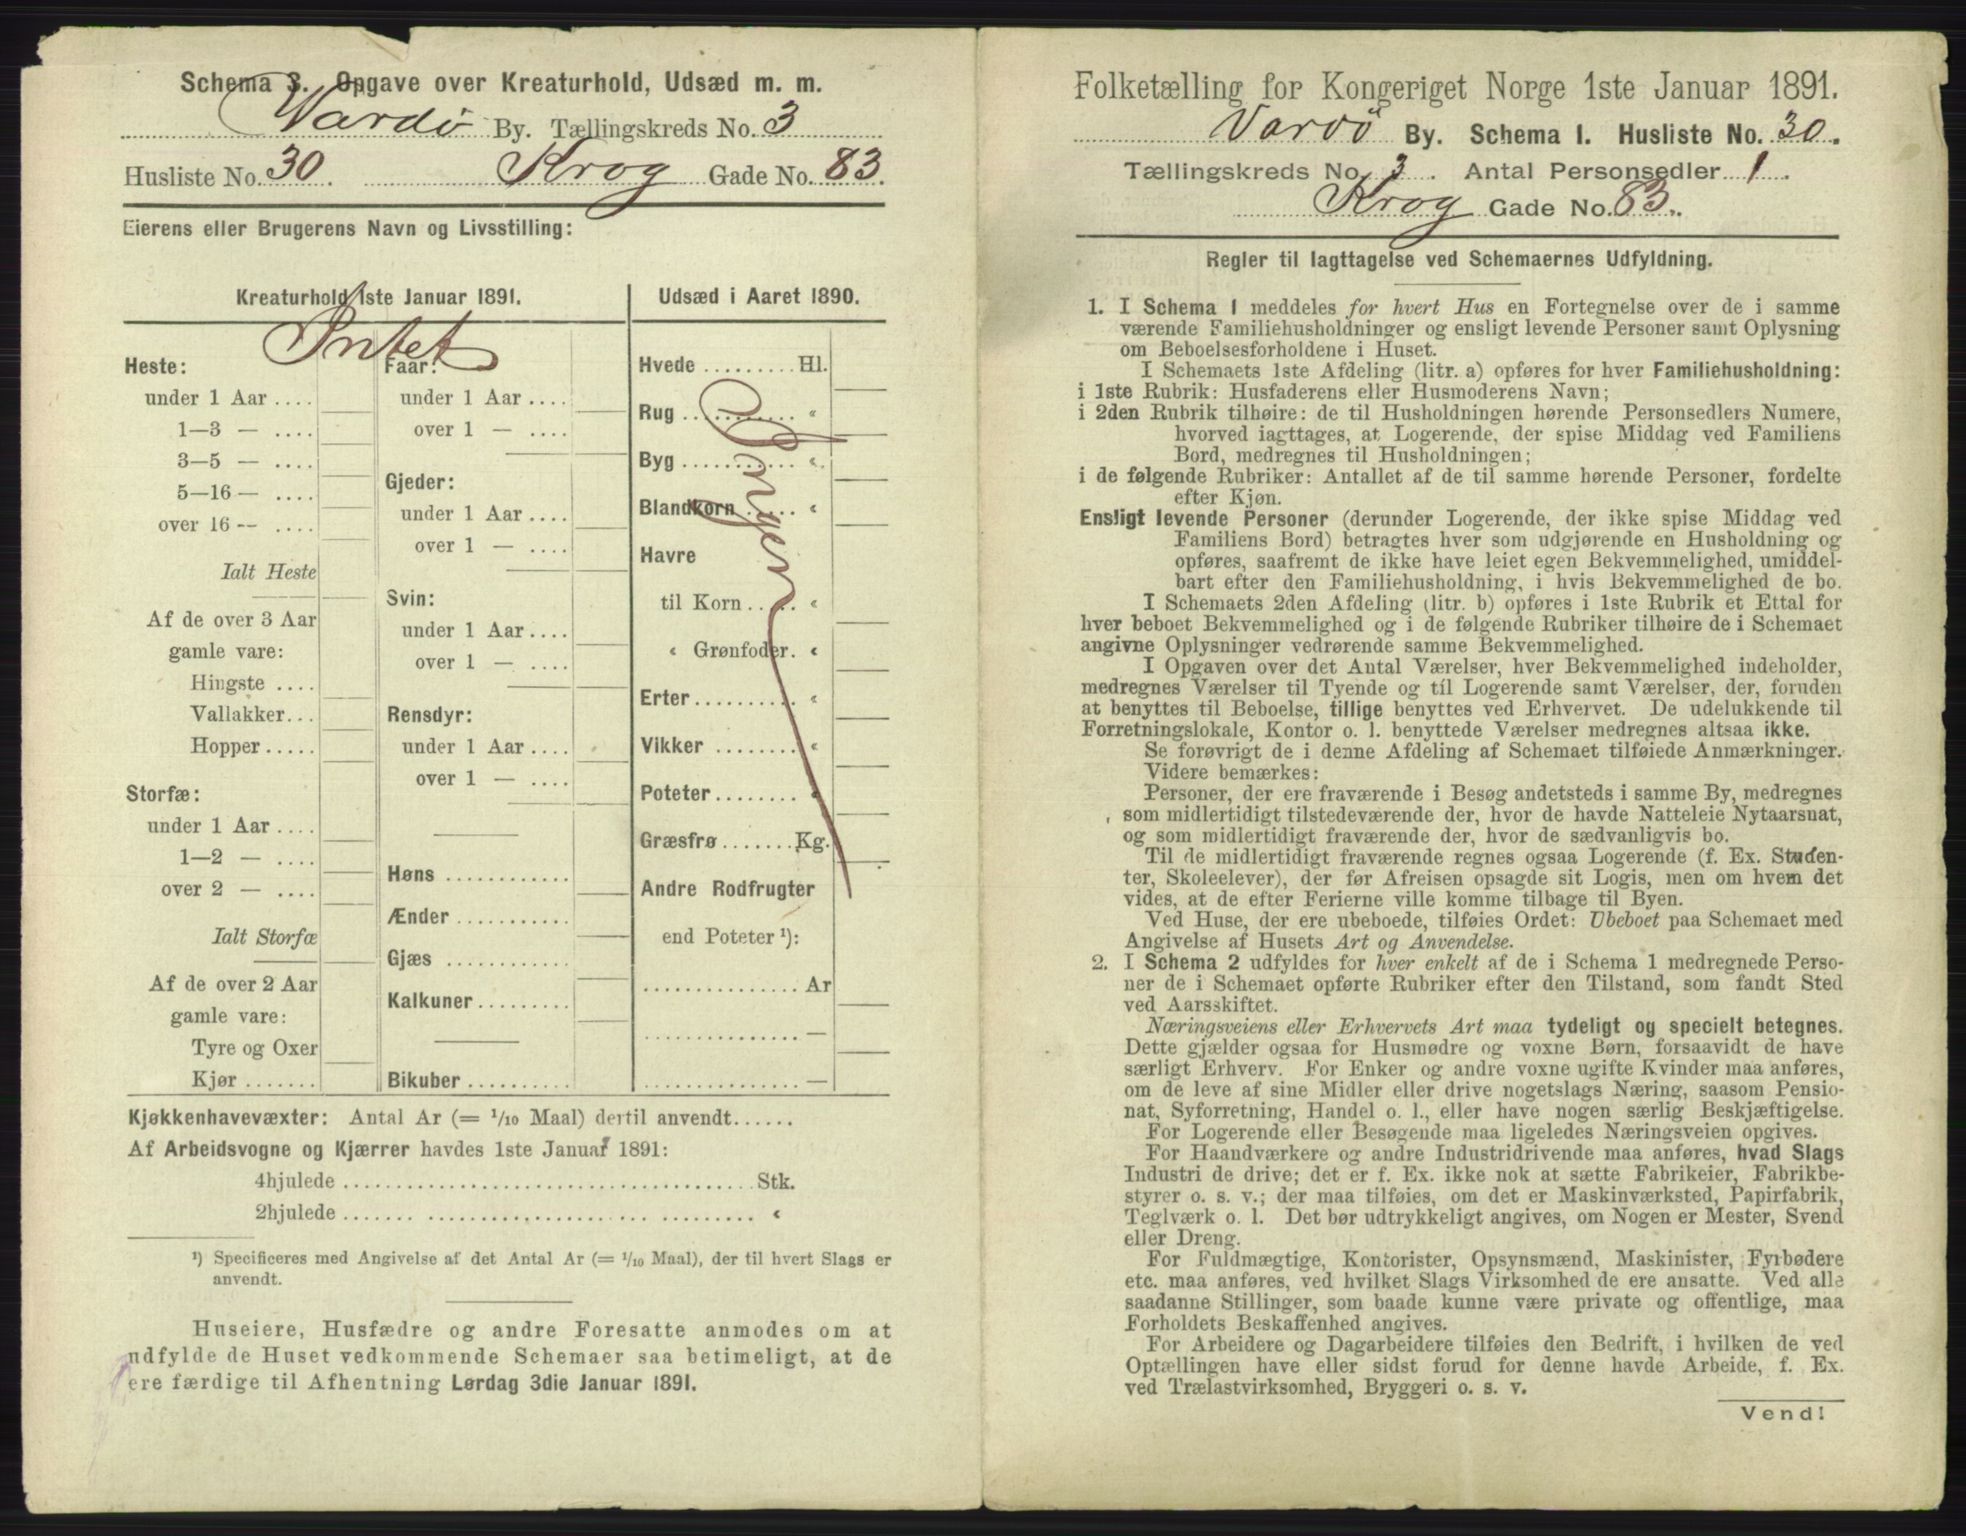 Schema 3. Opgave over Kreaturhold, Udsæd m. m.
Vardø By. Tællingskreds No. 3
Husliste No. 30. Krog Gade No. 83.
Eierens eller Brugerens Navn og Livsstilling:
Kreaturhold 1ste Januar 1891.
Intet
Heste:
under 1 Aar ....
1—3 — ....
3—5 — ....
5—16 — ....
over 16 -- ....
Ialt Heste
Af de over 3 Aar
gamle vare:
Hingste ....
Vallakker...
Hopper .....
Storfæ:
under 1 Aar ....
1—2 — ....
over 2 — ....
Ialt Storfæ
Af de over 2 Aar
gamle vare:
Tyre og Oxer
Kjør .......
Faar:
under 1 Aar ....
over 1 — ....
Gjeder:
under 1 Aar ....
over 1 — ....
Svin:
under 1 Aar ....
over 1 — ....
Rensdyr:
under 1 Aar ....
over 1 — ....
Høns ............
Ænder ...........
Gjæs ............
Kalkuner.........
Bikuber ..........
Udsæd i Aaret 1890.
Hvede ......... Hl.
Rug ........... "
Byg ........... "
Blandkorn ..... "
Havre
til Korn ..... "
" Grønfoder. "
Erter .......... "
Vikker ........ "
Poteter ........ "
Græsfrø ....... Kg.
Andre Rodfrugter
end Poteter ¹):
............... Ar
............... —
............... —
Kjøkkenhavevæxter: Antal Ar (= 1/10 Maal) dertil anvendt......
Af Arbeidsvogne og Kjærrer havdes 1ste Januar 1891:
4hjulede ........................................ Stk.
2hjulede ........................................ "
¹) Specificeres med Angivelse af det Antal Ar (= 1/10 Maal), der til hvert Slags er
anvendt.
Huseiere, Husfædre og andre Foresatte anmodes om at
udfylde de Huset vedkommende Schemaer saa betimeligt, at de
ere færdige til Afhentning Lørdag 3die Januar 1891.
Folketælling for Kongeriget Norge 1ste Januar 1891.
Vardø By. Schema 1. Husliste No. 30.
Tællingskreds No. 3. Antal Personsedler 1.
Krog Gade No. 83.
Regler til Iagttagelse ved Schemaernes Udfyldning.
1. I Schema 1 meddeles for hvert Hus en Fortegnelse over de i samme
værende Familiehusholdninger og ensligt levende Personer samt Oplysning
om Beboelsesforholdene i Huset.
I Schemaets 1ste Afdeling (litr. a) opføres for hver Familiehusholdning:
i 1ste Rubrik: Husfaderens eller Husmoderens Navn;
i 2den Rubrik tilhøire: de til Husholdningen hørende Personsedlers Numere,
hvorved iagttages, at Logerende, der spise Middag ved Familiens
Bord, medregnes til Husholdningen;
i de følgende Rubriker: Antallet af de til samme hørende Personer, fordelte
efter Kjøn.
Ensligt levende Personer (derunder Logerende, der ikke spise Middag ved
Familiens Bord) betragtes hver som udgjørende en Husholdning og
opføres, saafremt de ikke have leiet egen Bekvemmelighed, umiddel-
bart efter den Familiehusholdning, i hvis Bekvemmelighed de bo.
I Schemaets 2den Afdeling (litr. b) opføres i 1ste Rubrik et Ettal for
hver beboet Bekvemmelighed og i de følgende Rubriker tilhøire de i Schemaet
angivne Oplysninger vedrørende samme Bekvemmelighed.
I Opgaven over det Antal Værelser, hver Bekvemmelighed indeholder,
medregnes Værelser til Tyende og til Logerende samt Værelser, der, foruden
at benyttes til Beboelse, tillige benyttes ved Erhvervet. De udelukkende til
Forretningslokale, Kontor o. l. benyttede Værelser medregnes altsaa ikke.
Se forøvrigt de i denne Afdeling af Schemaet tilføiede Anmærkninger.
Videre bemærkes:
Personer, der ere fraværende i Besøg andetsteds i samme By, medregnes
som midlertidigt tilstedeværende der, hvor de havde Natteleie Nytaarsnat,
og som midlertidigt fraværende der, hvor de sædvanligvis bo.
Til de midlertidigt fraværende regnes ogsaa Logerende (f. Ex. Studen-
ter, Skoleelever), der før Afreisen opsagde sit Logis, men om hvem det
vides, at de efter Ferierne ville komme tilbage til Byen.
Ved Huse, der ere ubeboede, tilføies Ordet: Ubeboet paa Schemaet med
Angivelse af Husets Art og Anvendelse.
2. I Schema 2 udfyldes for hver enkelt af de i Schema 1 medregnede Perso-
ner de i Schemaet opførte Rubriker efter den Tilstand, som fandt Sted
ved Aarsskiftet.
Næringsveiens eller Erhvervets Art maa tydeligt og specielt betegnes.
Dette gjælder ogsaa for Husmødre og voxne Børn, forsaavidt de have
særligt Erhverv. For Enker og andre voxne ugifte Kvinder maa anføres,
om de leve af sine Midler eller drive nogetslags Næring, saasom Pensio-
nat, Syforretning, Handel o. l., eller have nogen særlig Beskjæftigelse.
For Logerende eller Besøgende maa ligeledes Næringsveien opgives.
For Haandværkere og andre Industridrivende maa anføres, hvad Slags
Industri de drive; det er f. Ex. ikke nok at sætte Fabrikeier, Fabrikbe-
styrer o. s. v.; der maa tilføies, om det er Maskinværksted, Papirfabrik,
Teglværk o. l. Det bør udtrykkeligt angives, om Nogen er Mester, Svend
eller Dreng.
For Fuldmægtige, Kontorister, Opsynsmænd, Maskinister, Fyrbødere
etc. maa anføres, ved hvilket Slags Virksomhed de ere ansatte. Ved alle
saadanne Stillinger, som baade kunne være private og offentlige, maa
Forholdets Beskaffenhed angives.
For Arbeidere og Dagarbeidere tilføies den Bedrift, i hvilken de ved
Optællingen have eller sidst forud for denne havde Arbeide, f. Ex.
ved Trælastvirksomhed, Bryggeri o. s. v.
Vend!